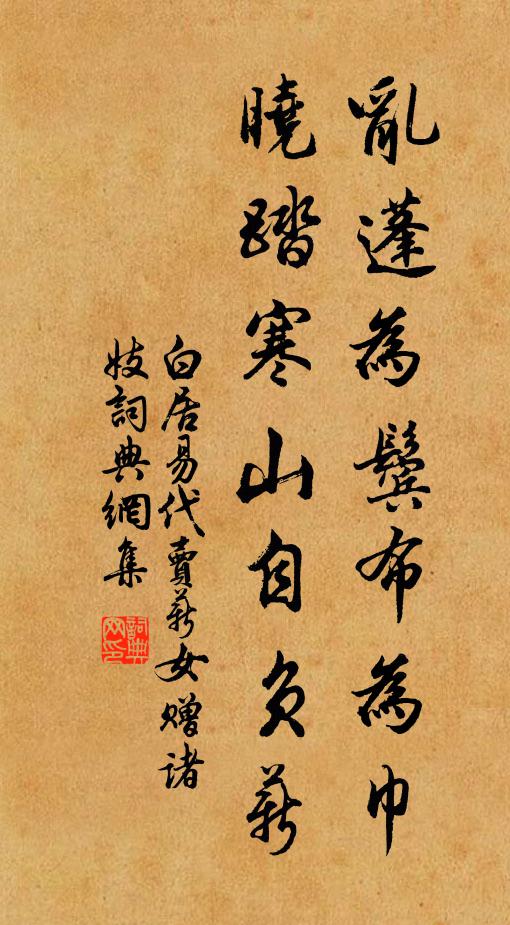 亂蓬為鬢布為巾
曉踏寒山自負薪
白居易代賣薪女贈诸
妓詞典網集
詞典網印